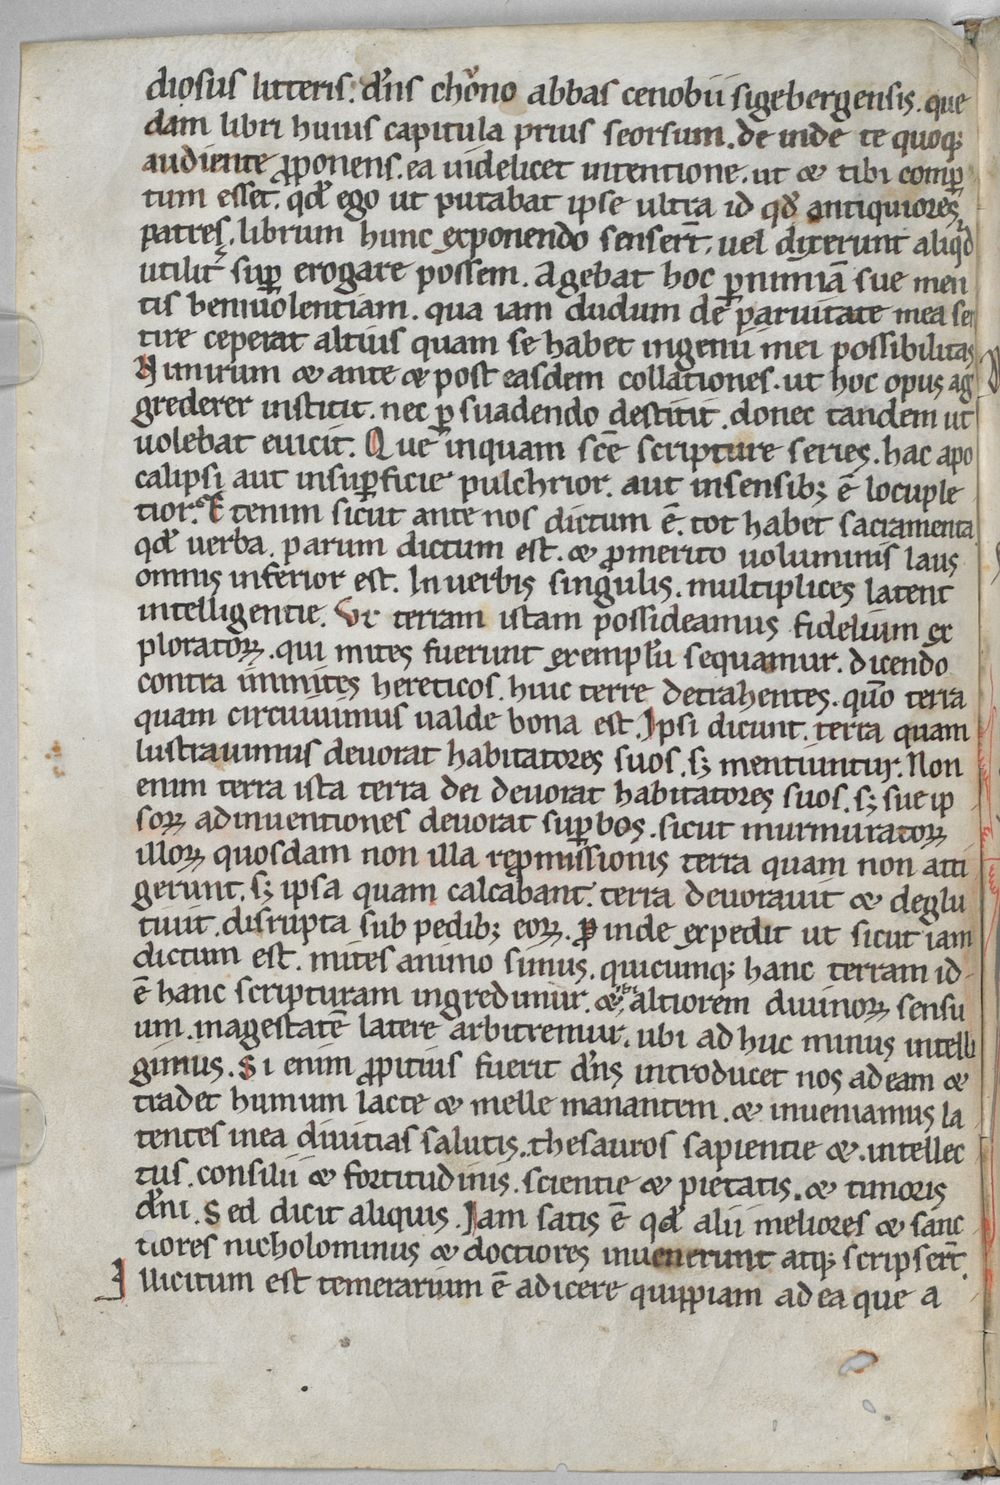 diosus litteris. dn̄s chŏno abbas cenobii sigebergensis. que
dam libri huius capitula prius seorsum. de inde te quoq;
audiente ꝓponens. ea uidelicet intentione. ut & tibi comp̱
tum esset. qd̄ ego ut putabat ipse ultra id qd̄ antiquiores
patres. librum hunc exponendo senser̄t. uel dixerunt aliqd̄
utilit̄ sup̱ erogare possem. Agebat hoc p̱ nimiā sue men
tis beniuolentiam. qua iam dudum de paruitate mea sen
tire ceperat altius quam se habet ingenii mei possibilitas
Nimirum & ante & post easdem collationes. ut hoc opus ag
grederer institit. nec p̱ suadendo destitit. donec tandem ut
uolebat euicit. Que inquam sc̄e scripture series. hac apo
calipsi aut insup̱ficie pulchrior. aut insensib; ē locuple
tior. Etenim sicut ante nos dictum ē. tot habet sacramenta
qd̄ uerba. parum dictum est. & ꝓ merito uoluminis laus
omnis inferior est. In uerbis singulis. multiplices latent
intelligentie. Ut terram istam possideamus fidelium ex
ploratoꝝ. qui mites fuerunt exemplū sequamur. dicendo
contra immites hereticos. huic terre detrahentes. quō terra
quam circuiuimus ualde bona est. Ipsi dicunt. terra quam
lustrauimus deuorat habitatores suos. s; mentiuntur. Non
enim terra ista terra dei deuorat habitatores suos. s; sue ip
soꝝ adinuentiones deuorat sup̱bos. sicut murmuratoꝝ
illoꝝ quosdam non illa repmissionis terra quam non atti
gerunt. s; ipsa quam calcabant terra deuorauit & deglu
tiuit. disrupta sub pedib; eoꝝ. ꝓinde expedit ut sicut iam
dictum est. mites animo simus. quicumq; hanc terram id
ē hanc scripturam ingredimur. & ibi altiorem diuinoꝝ sensu
um. magestatē latere arbitremur. ubi ad huc minus intelli
gimus. Si enim ꝓpitius fuerit dn̄s introducet nos ad eam &
tradet humum lacte & melle manantem. & inueniamus la
tentes inea diuitias salutis. thesauros sapientie & intellec
tus. consilii & fortitudinis. scientie & pietatis. & timoris
dn̄i. Sed dicit aliquis. Iam satis ē qd̄ alii meliores & sanc
tiores nicholominus & doctiores inuenerunt atq; scripser̄t.
Illicitum est temerarium ē adicere quippiam ad ea que a